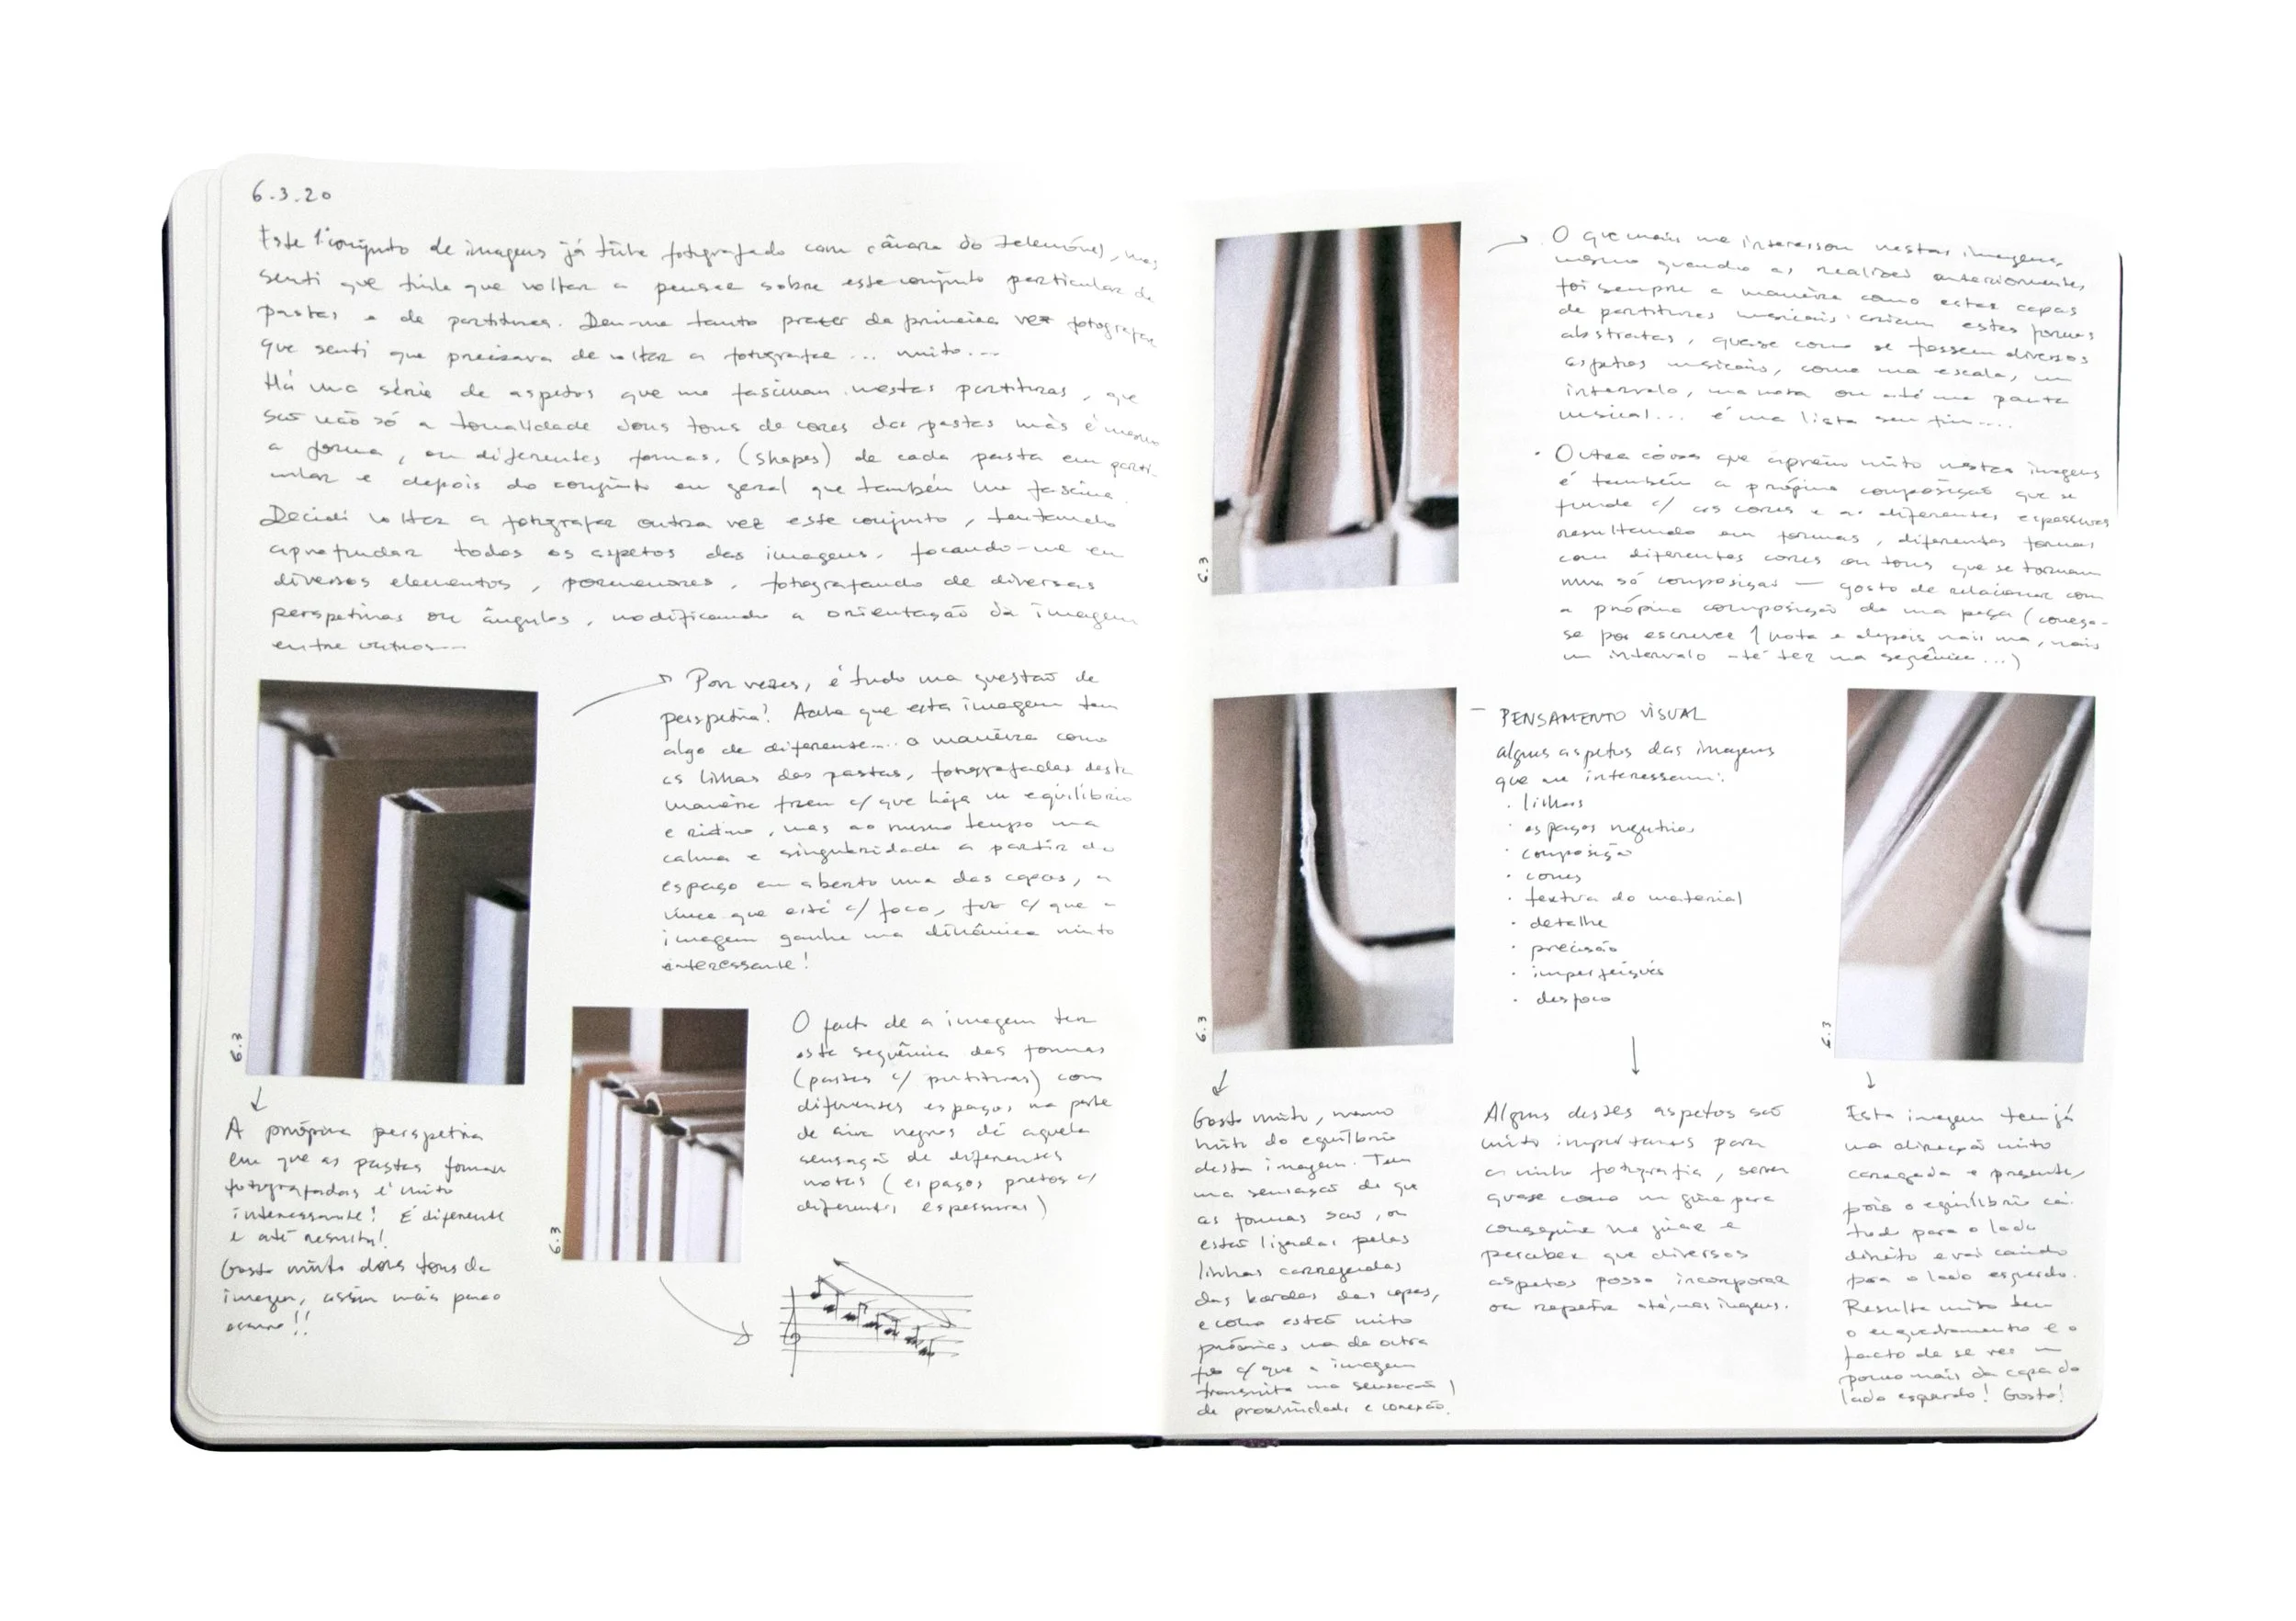 6.3.20
Este 1º conjunto de imagens já tinha fotografado com câmara do telemóvel, mas
senti que tinha que voltar a pensar sobre este conjunto particular de
pastas e de partituras. Deu-me tanto prazer da primeira vez fotografar
que senti que precisava de voltar a fotografar... muito...
Há uma série de aspetos que me fascinam nestas partituras, que
são não só a tonalidade dos tons de cores das pastas mas é mesmo
a forma, ou diferentes formas, (shapes) de cada pasta em parti-
cular e depois do conjunto em geral que também me fascina.
Decidi voltar a fotografar outra vez este conjunto, tentando
aprofundar todos os aspetos das imagens, focando-me em
diversos elementos, pormenores, fotografando de diversas
perspetivas ou ângulos, modificando a orientação da imagem
entre outros...
Por vezes, é tudo uma questão de
perspetiva! Acho que esta imagem tem
algo de diferente... a maneira como
as linhas das pastas, fotografadas desta
maneira fazem c/ que haja um equilíbrio
e ritmo, mas ao mesmo tempo uma
calma e singularidade a partir do
espaço em aberto numa das capas, a
única que está c/ foco, faz c/ que a
imagem ganhe uma dinâmica muito
interessante!
6.3
A própria perspetiva
em que as pastas foram
fotografadas é muito
interessante! É diferente
e até resulta!
Gosto muito dos tons da
imagem, assim mais para o
escuro!!
6.3
O facto de a imagem ter
esta sequência das formas
(pastas c/ partituras) com
diferentes espaços na parte
de cima negros dá aquela
sensação de diferentes
notas (espaços pretos c/
diferentes espessuras)
6.3
O que mais me interessou nestas imagens,
mesmo quando as realizei anteriormente,
foi sempre a maneira como estas capas
de partituras musicais criam estas formas
abstratas, quase como se fossem diversos
aspetos musicais, como uma escala, um
intervalo, uma nota ou até uma pauta
musical... é uma lista sem fim....
· Outra coisa que aprecio muito nestas imagens
é também a própria composição que se
funde c/ as cores e as diferentes espessuras
resultando em formas, diferentes formas
com diferentes cores ou tons que se tornam
numa só composição — gosto de relacionar com
a própria composição de uma peça (começa-
se por escrever 1 nota e depois mais uma, mais
um intervalo até ter uma sequência...)
6.3
- PENSAMENTO VISUAL
alguns aspetos das imagens
que me interessam:
· linhas
· espaços negativos
· composição
· cores
· textura do material
· detalhe
· precisão
· imperfeições
· desfoco
6.3
Gosto muito, mesmo
muito do equilíbrio
desta imagem. Tem
uma sensação de que
as formas são, ou
estão ligadas pelas
linhas carregadas
das bordas das capas,
e como estão muito
próximas uma da outra
faz c/ que a imagem
transmita uma sensação
de proximidade e conexão.
Alguns destes aspetos são
muito importantes para
a minha fotografia, servem
quase como um guia para
conseguir me guiar e
perceber que diversos
aspetos posso incorporar
ou repetir até, nas imagens.
Esta imagem tem já
uma direcção muito
carregada e presente,
pois o equilíbrio cai
tudo para o lado
direito e vai caindo
para o lado esquerdo.
Resulta muito bem
o enquadramento e o
facto de se ver um
pouco mais da capa do
lado esquerdo! Gosto!